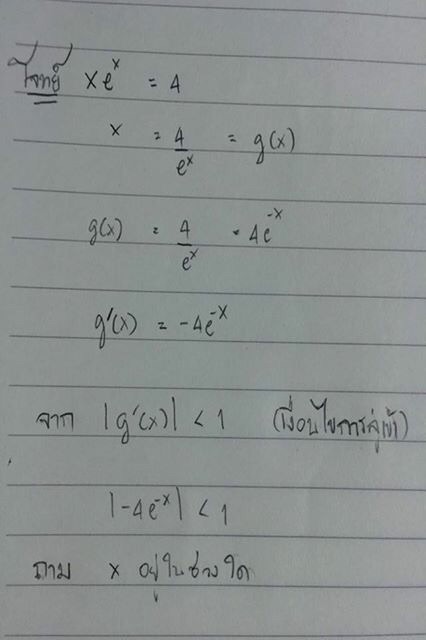 โจทย์ xeˣ = 4
x = 4/eˣ = g(x)
g(x) = 4/eˣ = 4e⁻ˣ
g'(x) = -4e⁻ˣ
จาก |g'(x)| < 1 (เงื่อนไขการลู่เข้า)
|-4e⁻ˣ| < 1
ถาม x อยู่ในช่วงใด